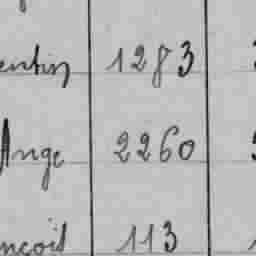 entin 1283
Ange 2260
nçois 113